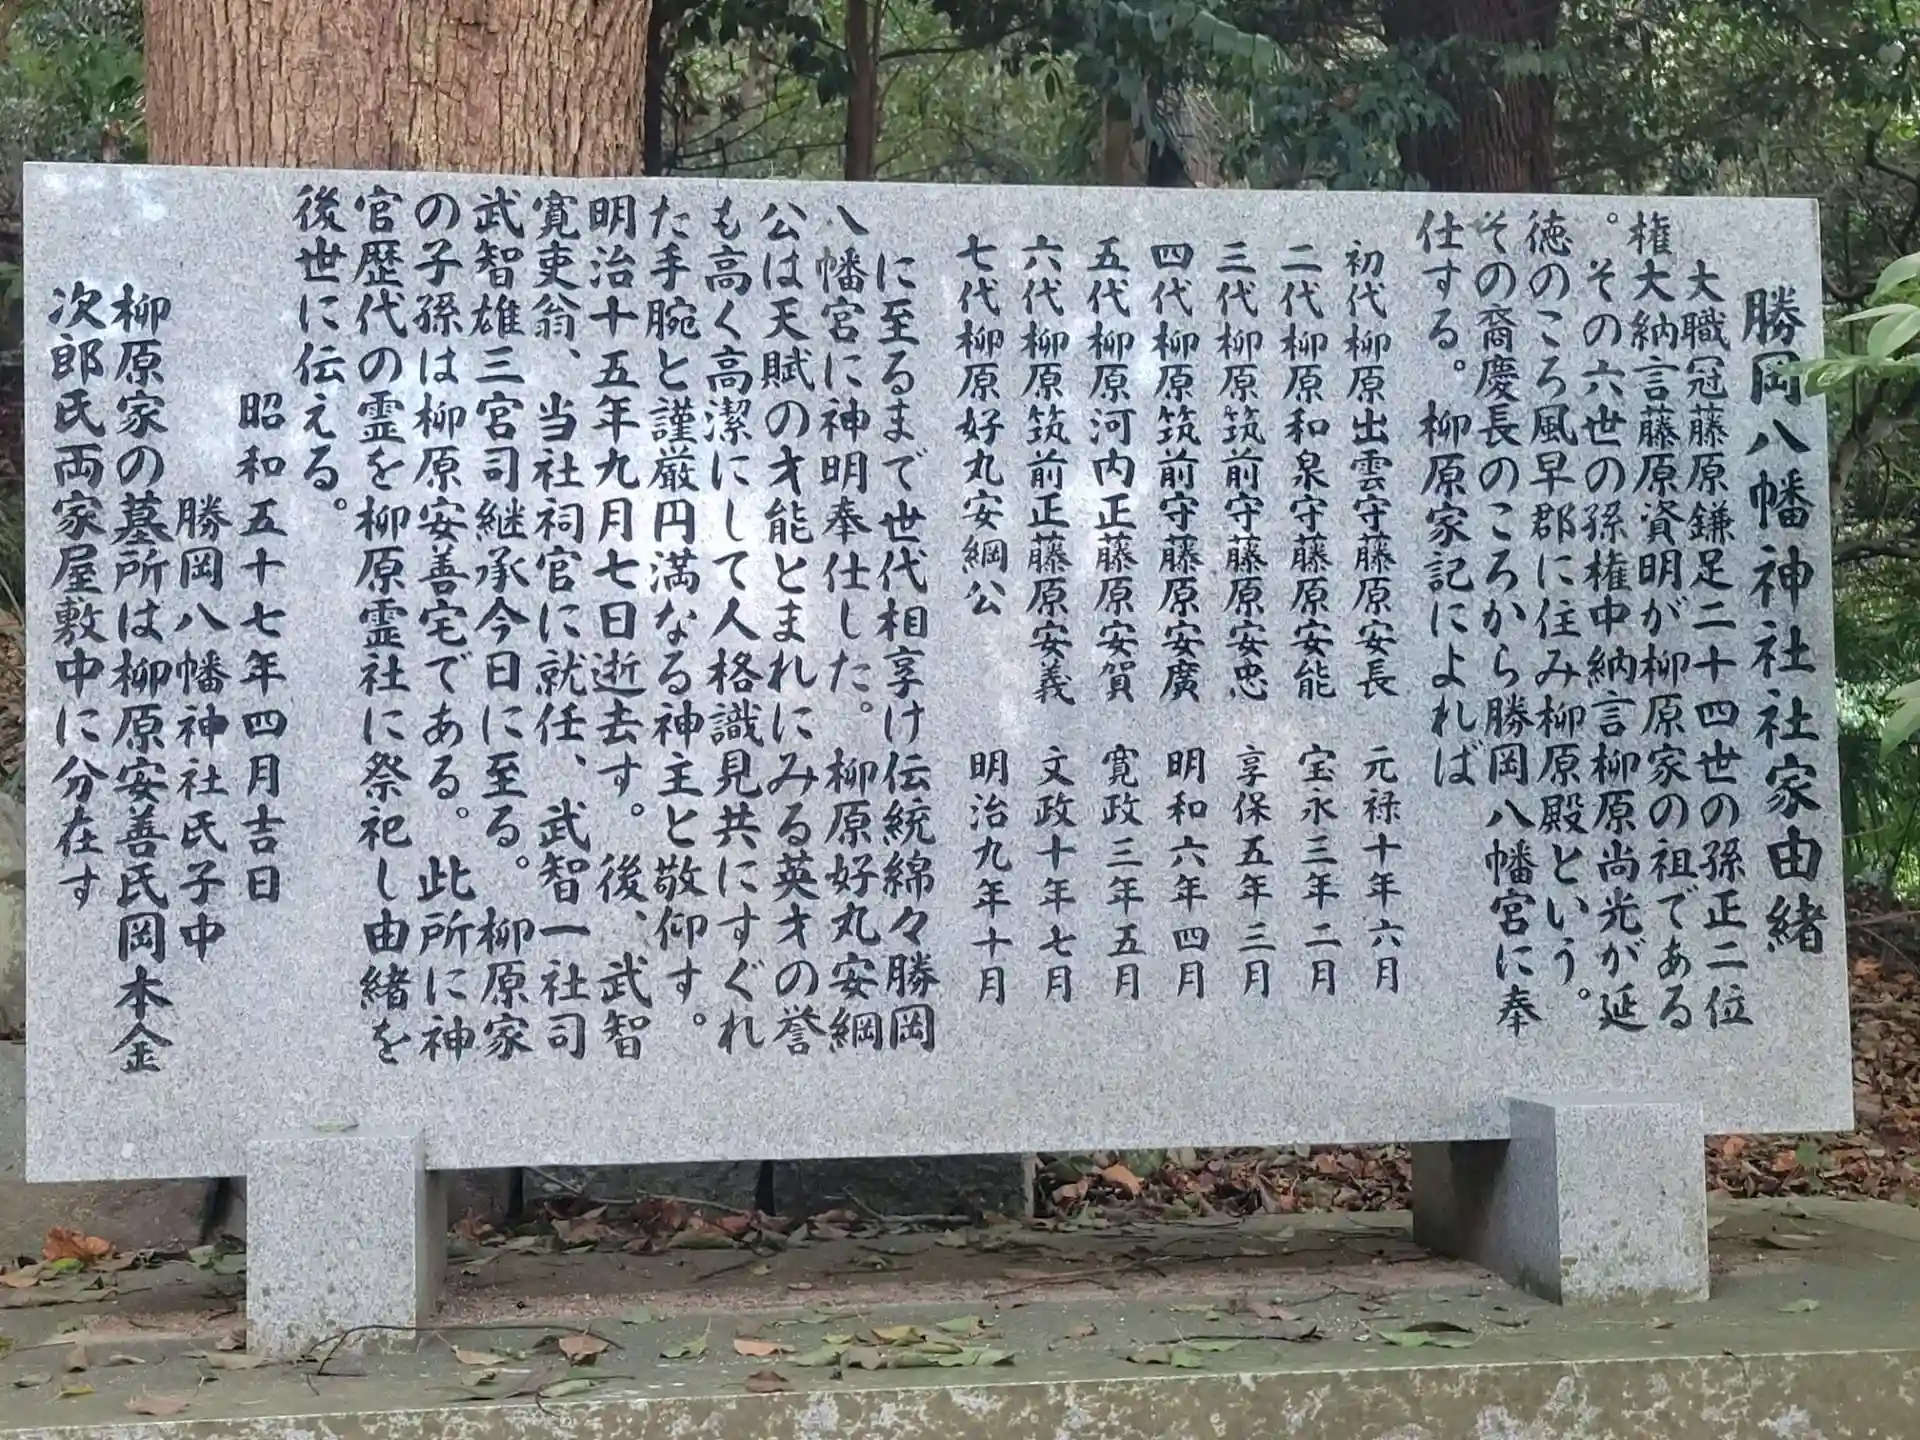 勝岡八幡神社社家由緒
大職冠藤原鎌足二十四世の孫正二位
権大納言藤原資明が柳原家の祖である
。その六世の孫権中納言柳原尚光が延
徳のころ風早郡に住み柳原殿という。
その裔慶長のころから勝岡八幡宮に奉
仕する。柳原家記によれば
初代柳原出雲守藤原安長 元禄十年六月
二代柳原和泉守藤原安能 宝永三年二月
三代柳原筑前守藤原安忠 享保五年三月
四代柳原筑前守藤原安廣 明和六年四月
五代柳原河内正藤原安賀 寛政三年五月
六代柳原筑前正藤原安義 文政十年七月
七代柳原好丸安綱公 明治九年十月
に至るまで世代相享け伝統綿々勝岡
八幡宮に神明奉仕した。柳原好丸安綱
公は天賦の才能とまれにみる英才の誉
も高く高潔にして人格識見共にすぐれ
た手腕と謹厳円満なる神主と敬仰す。
明治十五年九月七日逝去す。後、武智
寛吏翁、当社祠官に就任、武智一社司
武智雄三宮司継承今日に至る。柳原家
の子孫は柳原安善宅である。此所に神
官歴代の霊を柳原霊社に祭祀し由緒を
後世に伝える。
昭和五十七年四月吉日
勝岡八幡神社氏子中
柳原家の墓所は柳原安善氏岡本金
次郎氏両家屋敷中に分在す